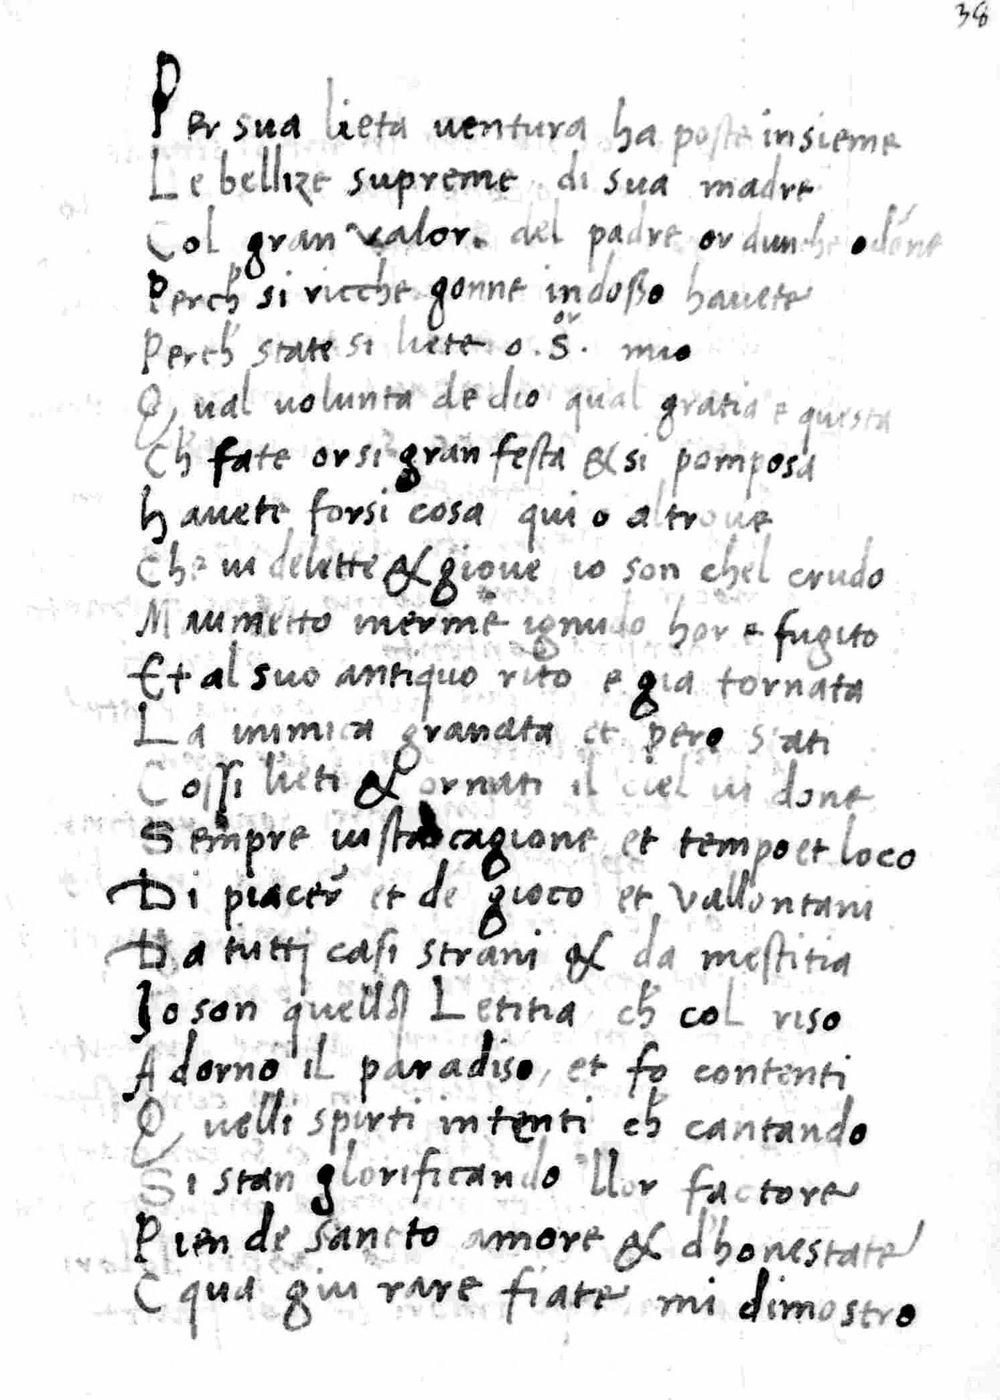 38
Per sua lieta uentura ha poste insieme
Le bellize supreme di sua madre
Col gran valor. del padre or dunche o dōne
Perch̄ si ricche gonne indoßo hauete
Perch̄ state si liete o .S.or mio
Qual volunta de dio qual gratia e questa
Ch̄ fate or si gran festa & si pomposa
hauete forsi cosa qui o altroue
Che ui delette & gioue io son chel crudo
Maumetto inerme ignudo hor e fugito
Et al suo antiquo rito e gia tornata
La inimica granata et pero stati
Cossi lieti & ornati il ciel ui done
Sempre iusta cagione et tempo et loco
Di piacer et de gioco et vallontani
Da tutti casi strani & da mestitia
Io son quella Letitia ch̄ col riso
Adorno il paradiso, et fo contenti
Quelli spirti intenti ch̄ cantando
Si stan glorificando llor factore
Pien de sancto amore & dhonestate
E qua giu rare fiate mi dimostro